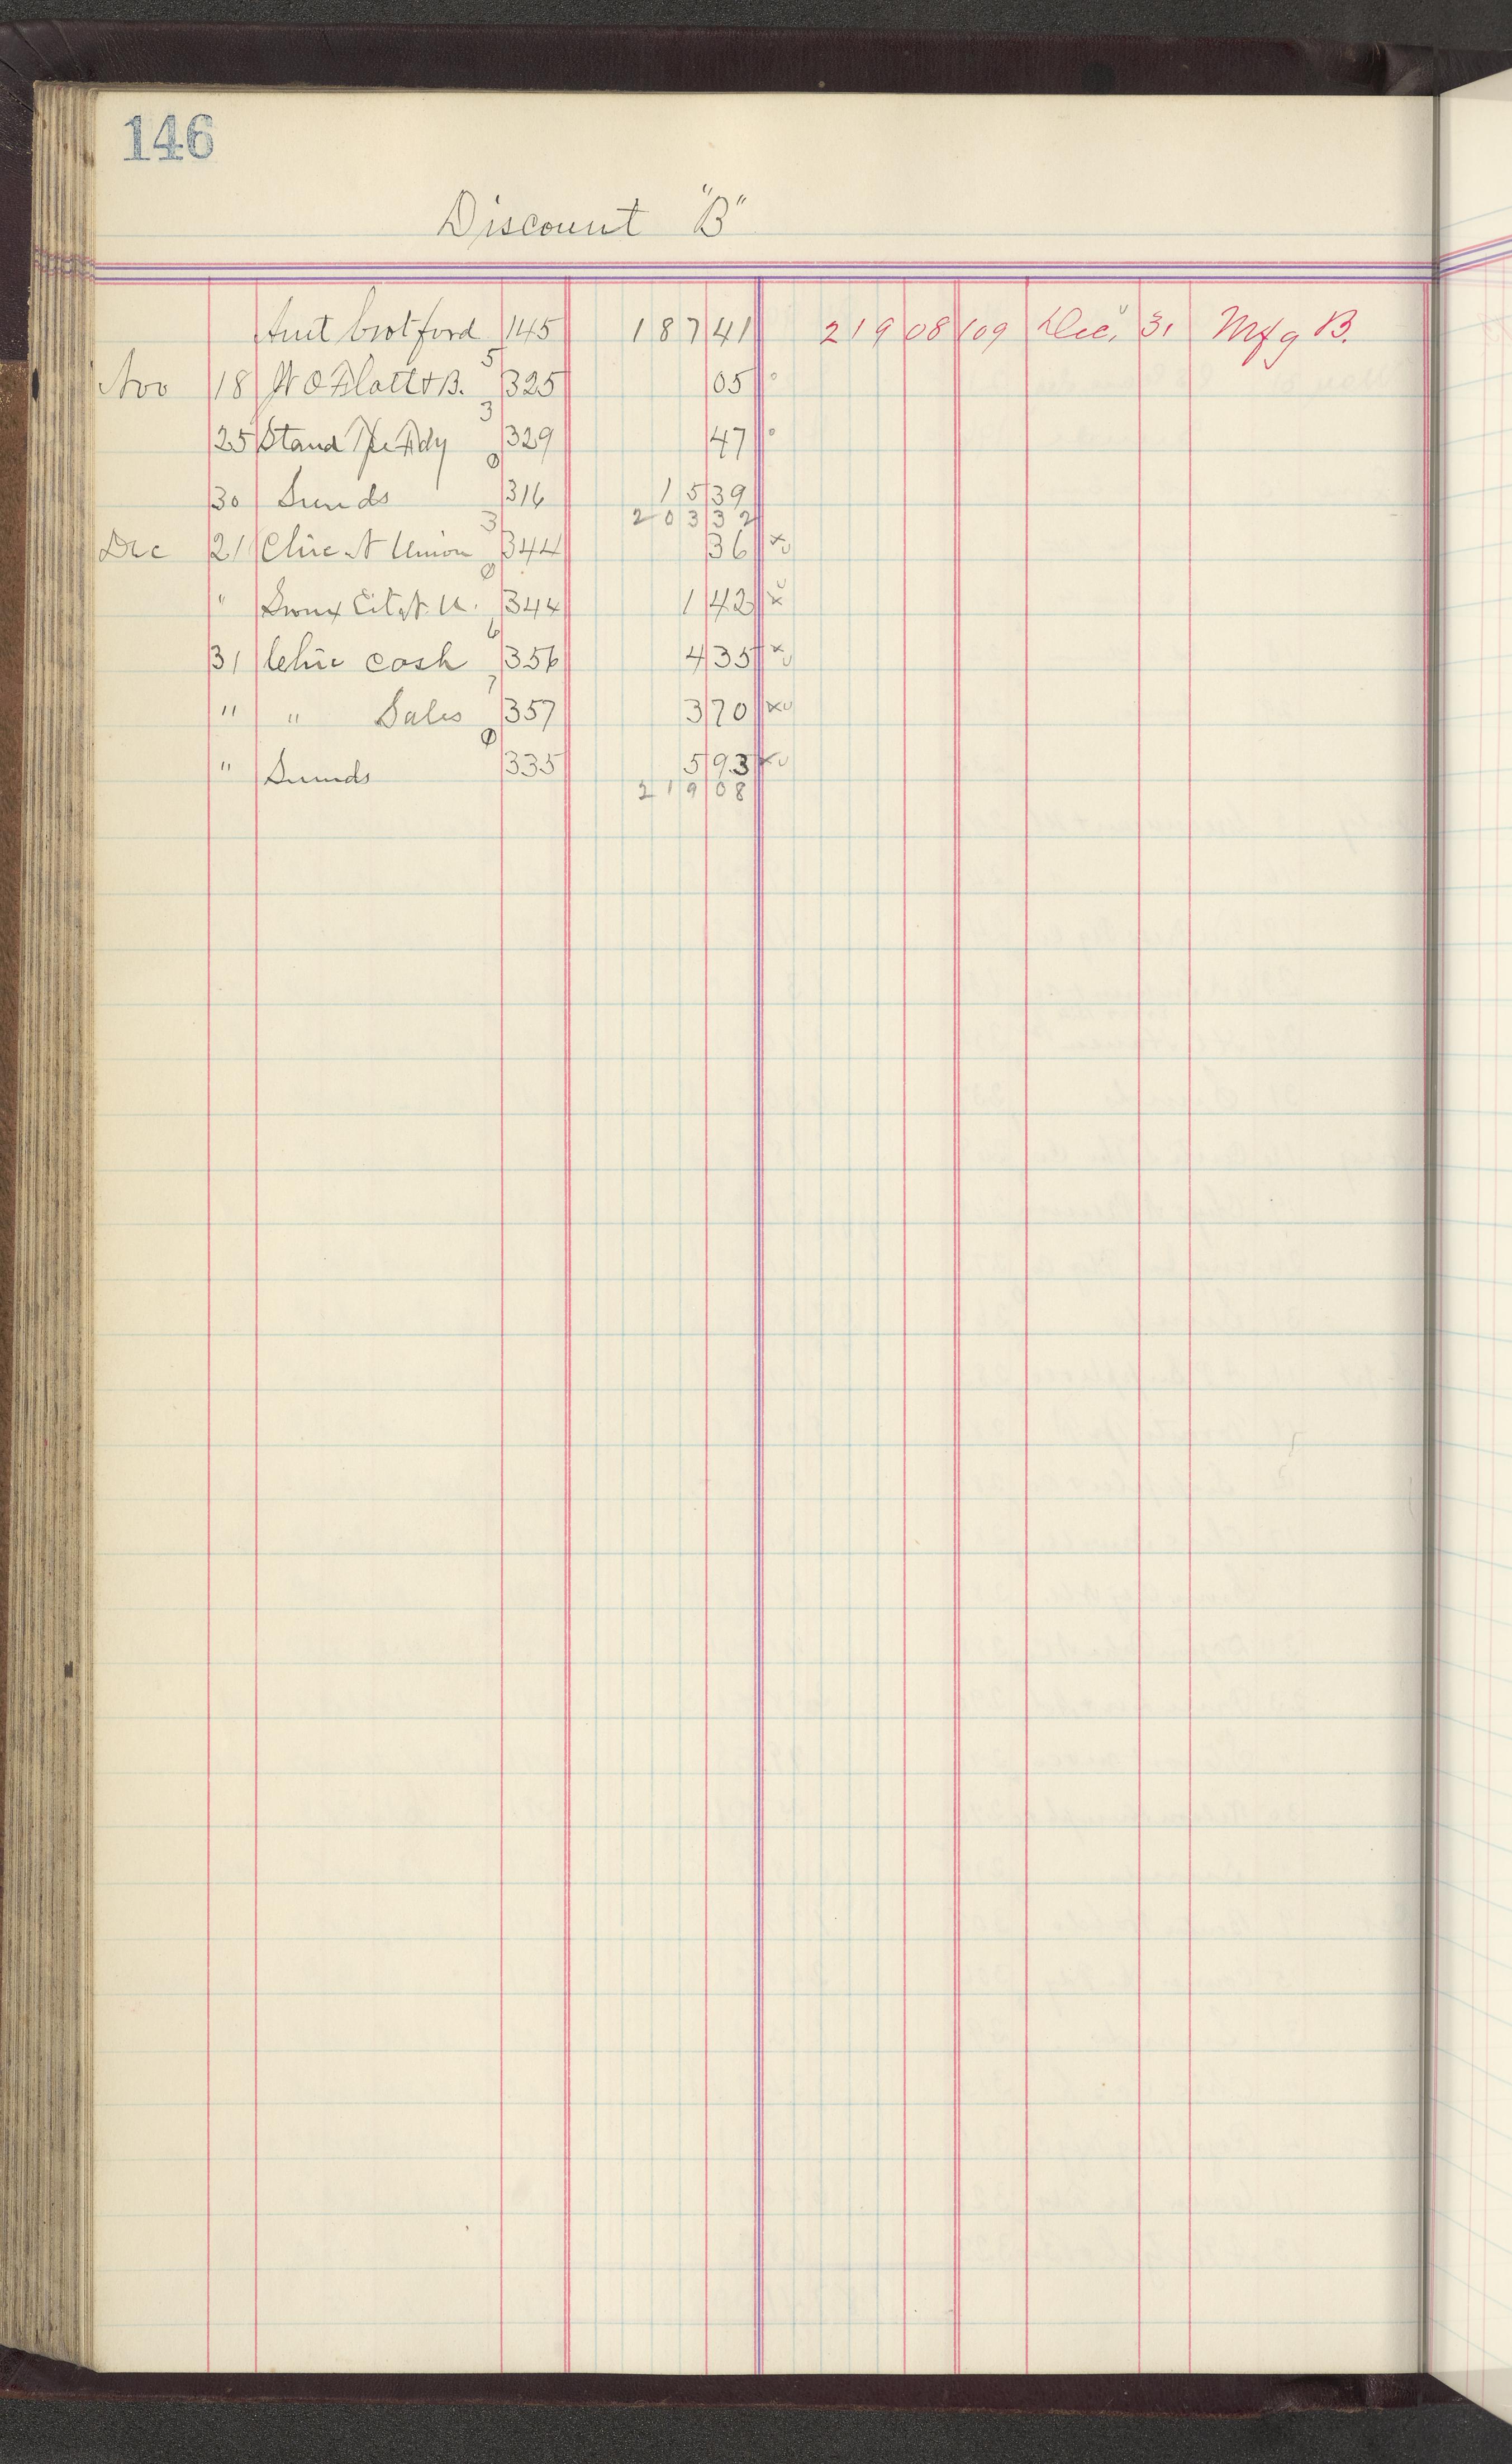 146
Discount "B"
Amt brot ford 145 187 41 219 08 109 Dec. 31 Mfg B.
Nov 18 W O Platt & B. 5 325 05
25 Stand 3 329 47
30 Sunds 0 316 15 39
203 32
Dec 21 Chic N Union 3 344 36 x
" Sioux Cit N. U. 0 344 1 42 x
31 Chic Cash 6 356 4 35 x
" " Sales 7 357 3 70 x
" Sunds 0 335 5 93 x
219 08